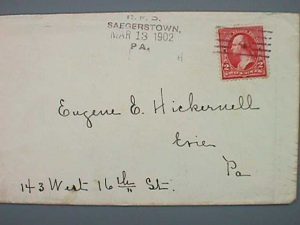 R. F. D.
SAEGERSTOWN,
MAR 13 1902
PA.
2 2
Eugene E. Hickernell
Erie
Pa
143 West 16th St.